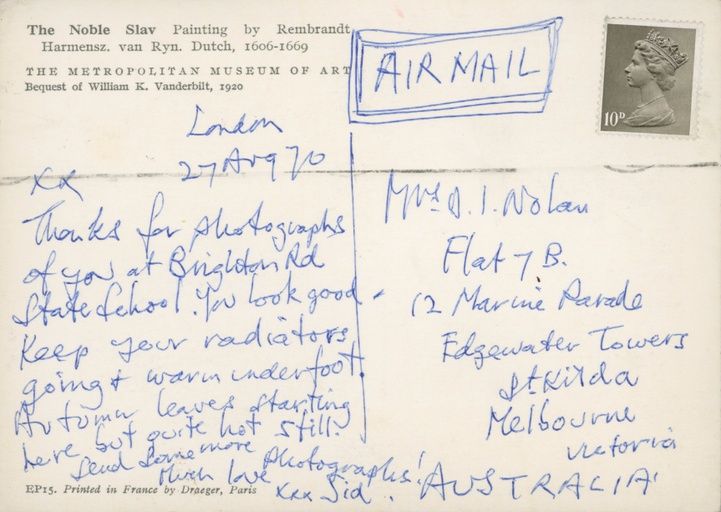 The Noble Slav Painting by Rembrandt
Harmensz. van Ryn. Dutch, 1606-1669
THE METROPOLITAN MUSEUM OF ART
Bequest of William K. Vanderbilt, 1920
AIR MAIL
10D
London
27 Aug 70
xx
Thanks for photographs
of you at Brighton Rd
State School. You look good.
Keep your radiators
going & warm underfoot.
Autumn leaves starting
here but quite hot still.
Send some more photographs!
Much love
xxx Sid.
Mrs D. I. Nolan
Flat 7 B.
12 Marine Parade
Edgewater Towers
St Kilda
Melbourne
Victoria
AUSTRALIA
EP15. Printed in France by Draeger, Paris